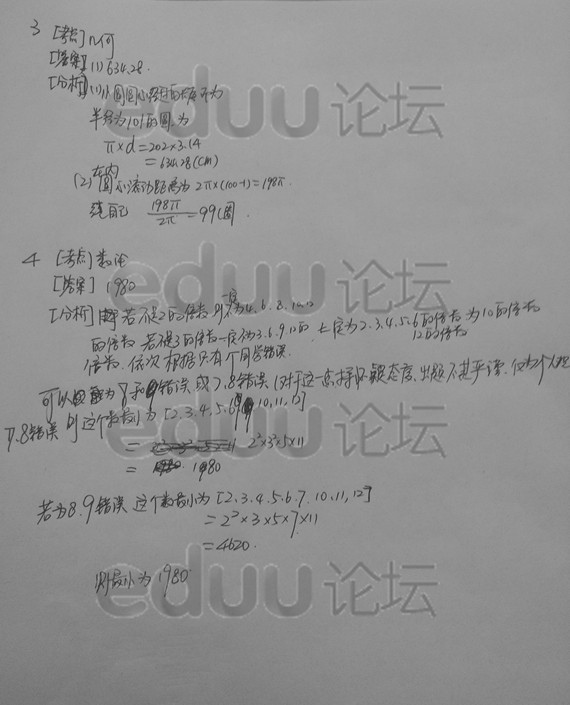 3 [考点]几何
[答案](1)634.28.
[分析](1)小圆圆心经过的长度为
半径为101的圆.为
π×d=202×3.14
=634.28(cm)
(2)在内圆心滚动距离为2π×(100-1)=198π.
绕自己 198π/2π=99圈
4 [考点]数论
[答案] 1980
[分析]若不是2的倍数 则一定不为4.6.8.10.12
的倍数 若不是3的倍数一定不为3.6.9.12的 一定为2.3.4.5.6的倍数 为10的倍数
倍数. 依次根据只有 同学错误. 12的倍数
可以 为8和9错误 或7.8错误(对于这一点持怀疑态度.出题不甚严谨.
7.8错误 则这个数最小为[2.3.4.5.6.9.10,11,12]
= 2²×3²×5×11
= 1980
若为8.9错误 这个数最小为[2.3.4.5.6.7.10.11,12]
=2²×3×5×7×11
=4620.
则最小为1980
eduu论坛
eduu论坛
eduu论坛